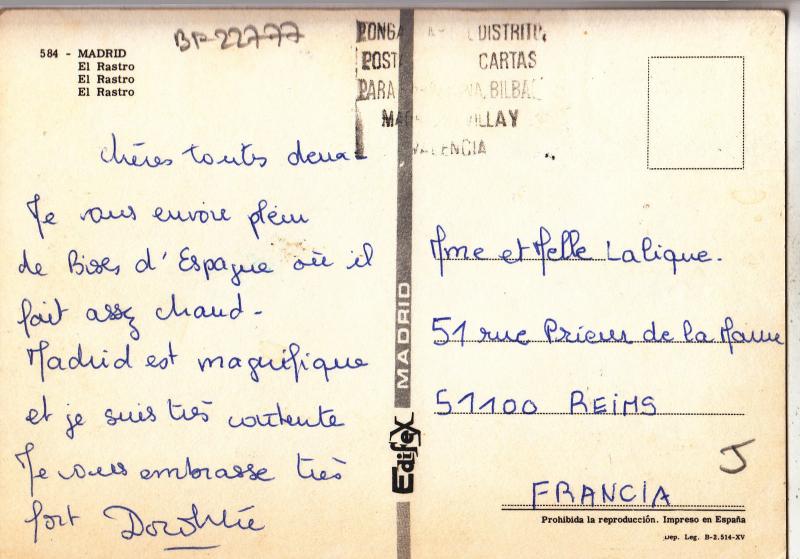 BP-22777
584 - MADRID
El Rastro
El Rastro
El Rastro
PONGA DISTRITO,
POSTAL CARTAS
PARA BILBAO
VALENCIA
chères toutes deux -
Je vous envoie plein
de Bises d'Espagne où il
fait assez chaud -
Madrid est magnifique
et je suis très contente
Je vous embrasse très
fort Dorothée
MADRID
EdifeX
Mme et Melle Lalique.
51 rue Prieur de la Marne
51100 REIMS
FRANCIA
Prohibida la reproducción. Impreso en España
Dep. Leg. B-2.514-XV